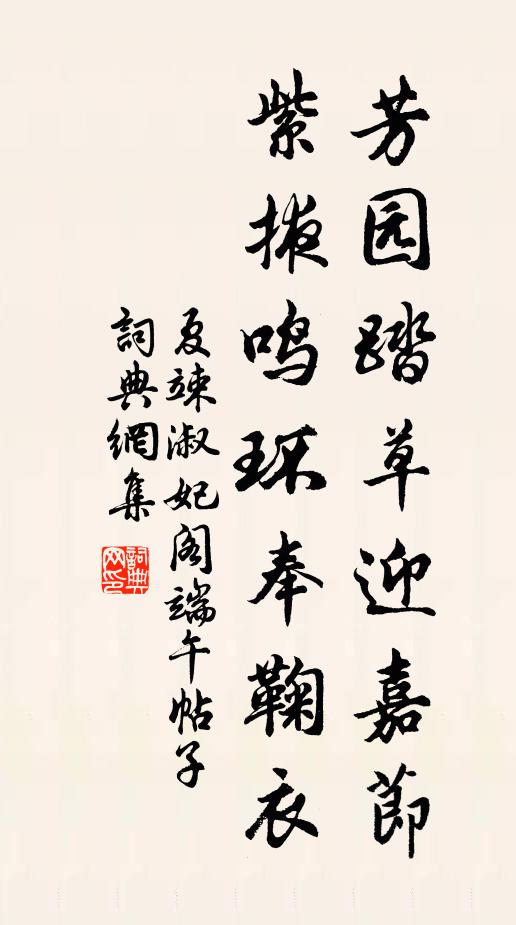 芳园踏草迎嘉节
紫掖鸣环奉鞠衣
夏竦淑妃阁端午帖子
詞典網集
詞典网印